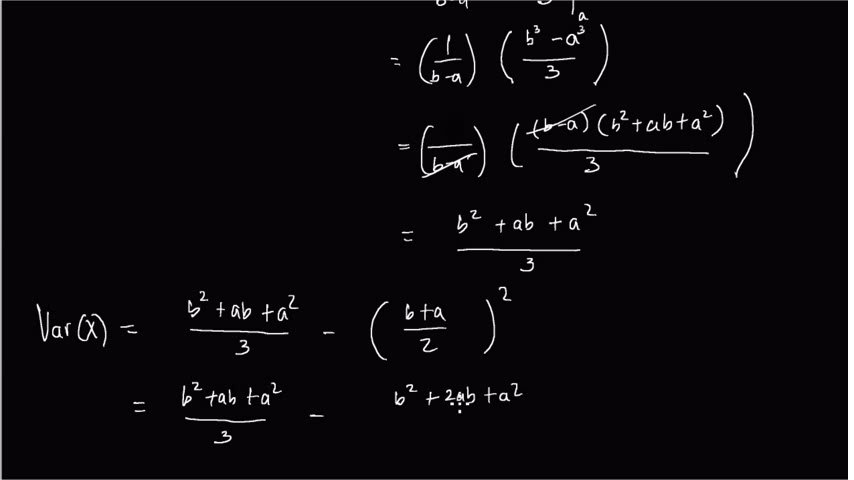 a
= (1/(b-a)) ((b³ - a³)/3)
= ( /(b-a)) (((b-a)(b² + ab + a²))/3)
= (b² + ab + a²)/3
Var(X) = (b² + ab + a²)/3 - ((b+a)/2)²
= (b² + ab + a²)/3 - b² + 2ab + a²